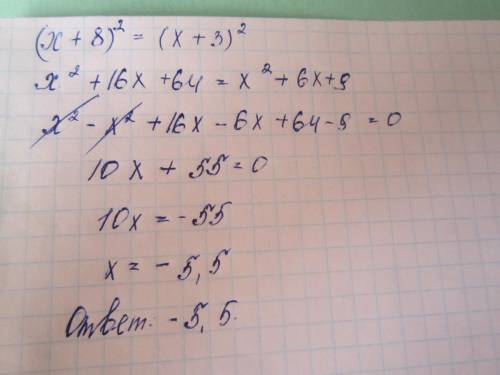 (x + 8)² = (x + 3)²
x² + 16x + 64 = x² + 6x + 9
x² - x² + 16x - 6x + 64 - 9 = 0
10x + 55 = 0
10x = -55
x = - 5,5
Ответ: - 5,5.